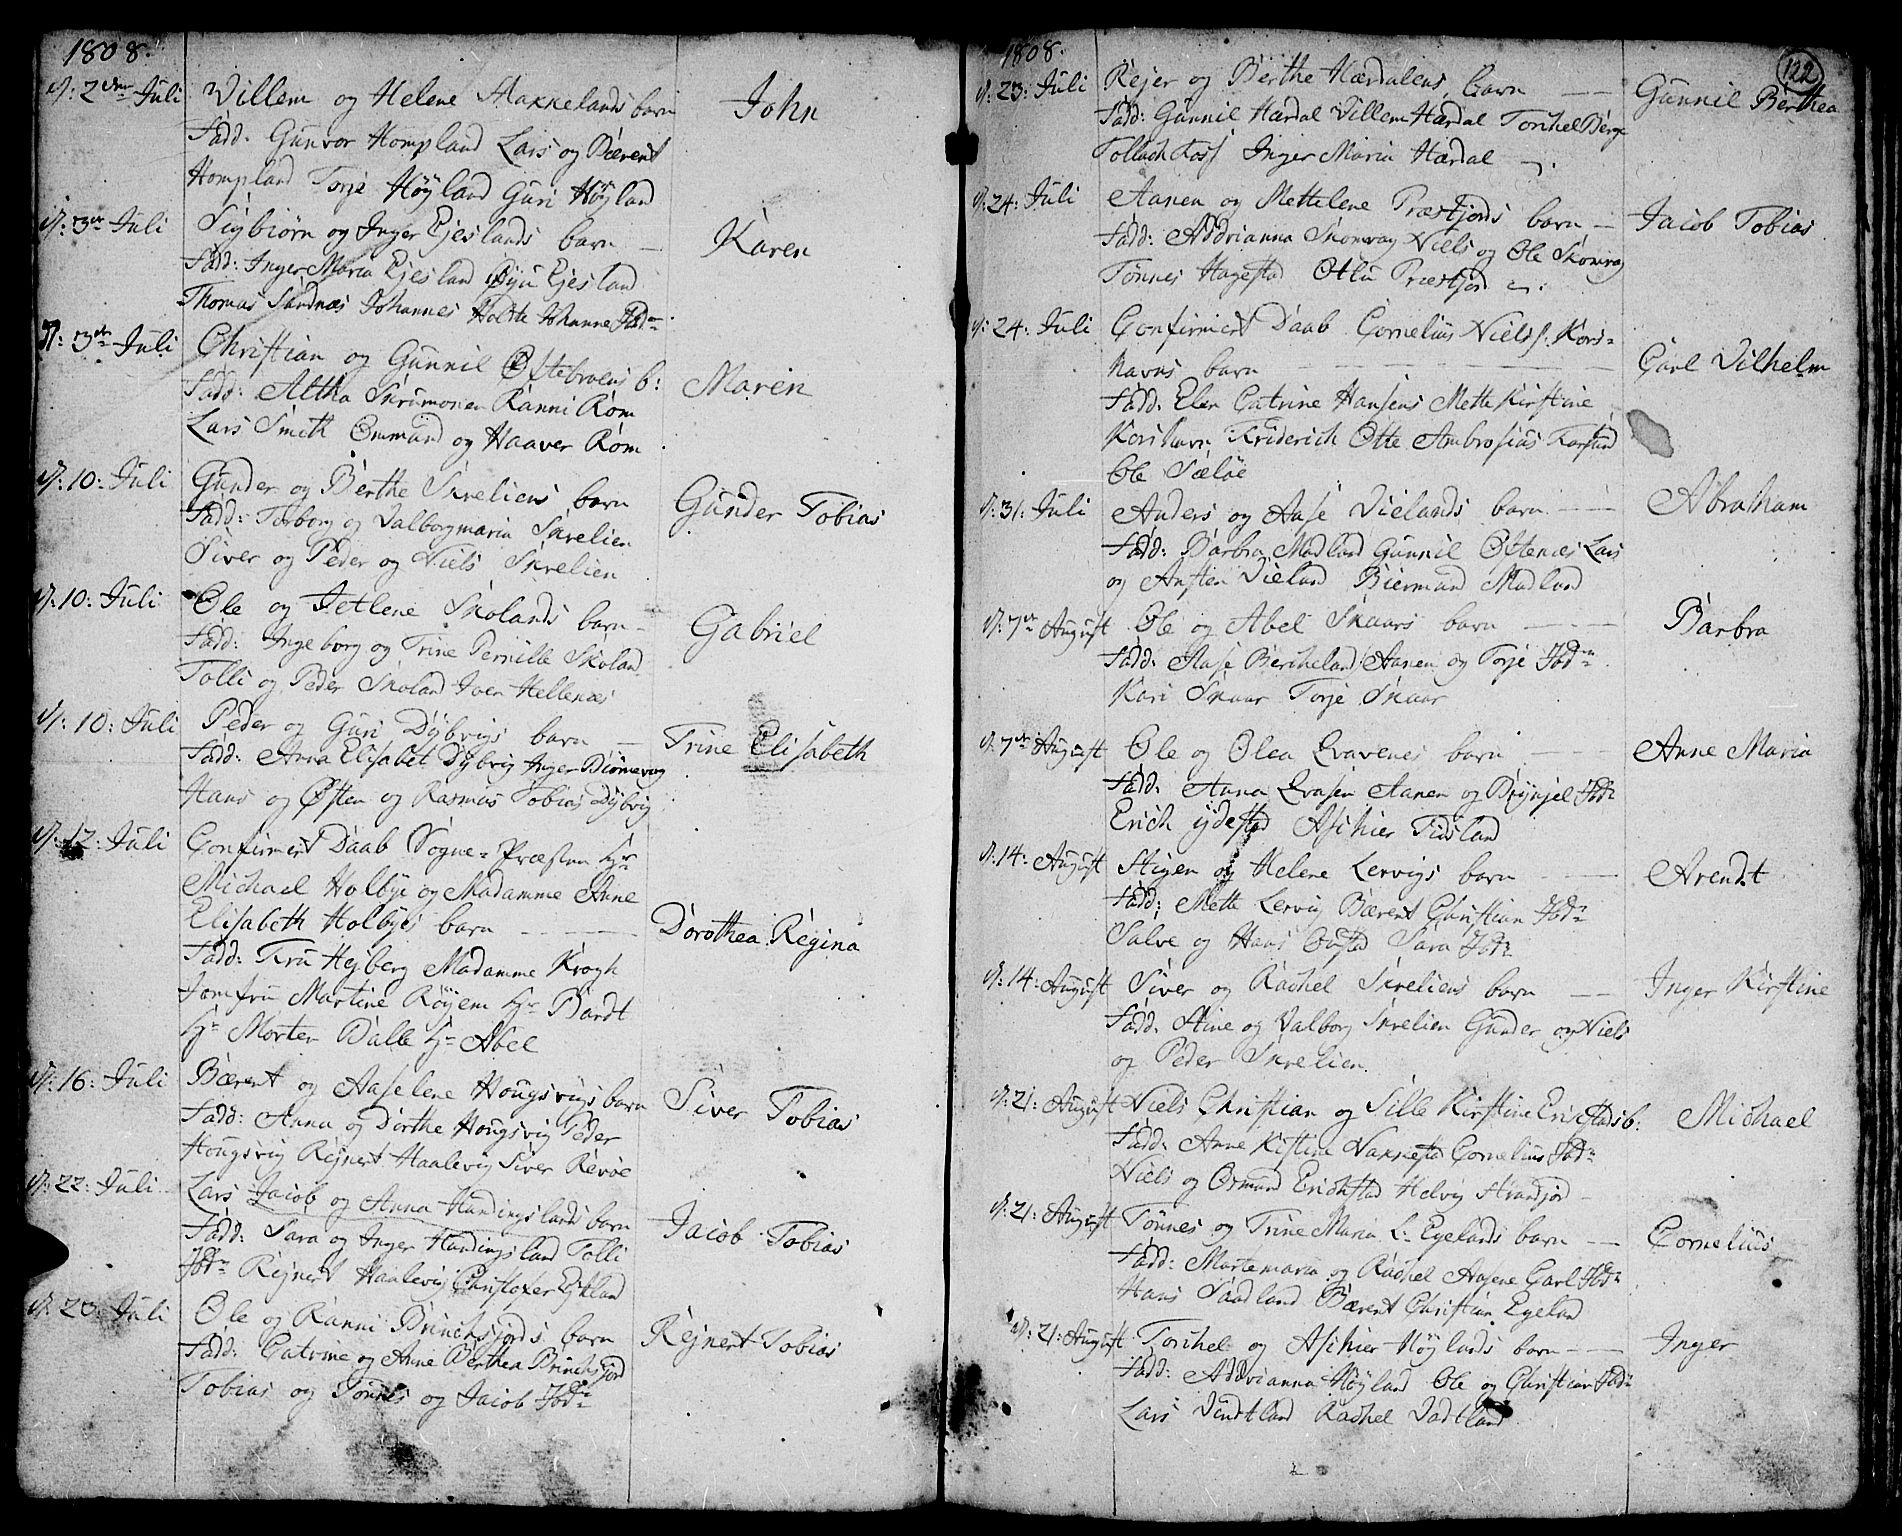 1808.
d: 2den Juli Willem og Helene Stakkelands barn John
Fadd: Gunvor Hompland Lars og Bærent
Hompland Torje Høyland Guri Høyland
d: 3de Juli Sigbiørn og Inger Ejeslands barn — Karen
Fadd: Inger Maria Ejesland Ejesland
Thomas Sandnæs Johannes Holtte Johanne Ibdm
d: 3de Juli Christian og Gunnil Øftebroens b: Maren
Fadd: Altha Skrumonen Ranni Røm
Lars Smith Ommund og Haaver Røm
d: 10: Juli Gunder og Berthe Skreliens barn Gunder Tobias
Fadd: Torborg og Valborgmaria Skrelien
Siver og Peder og Niels Skrelien
d: 10: Juli Ole og Jetlene Skolands barn — Gabriel
Fadd: Ingeborg og Trine Pernille Skoland
Tolli og Peder Skoland Iver Hellenæs
d: 10: Juli Peder og Guri Dybvigs barn — Trine Elisabeth
Fadd: Anna Elisabet Dybvig Inger Biørnevog
Hans og Østen og Rasmus Tobias Dybvig
d: 12: Juli Confirmert Daab Sogne-Præsten Hr
Michael Holbye og Madamme Anne
Elisabeth Holbyes barn — Dorothea Regina
Fadd: Fru Hejberg Madamme Krogh
Jomfru Martine Røyem Hr Bardt
Hr Morten Balle Hr Abel
d: 16: Juli Bærent og Aaselene Hougsvigs barn Siver Tobias
Fadd: Anna og Dorthe Hougsvig Peder
Hougsvig Rejnert Haalevig Siver Revøe
d: 22: Juli Lars Jacob og Anna Hundingslands barn Jacob Tobias
Fadd: Sara og Inger Hundingsland Tolli
Ibdm Rejnert Haalevig Christofer Eykland
d: 23: Juli Ole og Ranni Brinchsjords barn Rejnert Tobias
Fadd: Catrine og Anne Berthea Brinchsjord
Tobias og Tønnes og Jacob Ibdm
1808. 122
d: 23: Juli Rejer og Berthe Hærdalens barn — Gunnil Berthea
Fadd: Gunnil Hærdal Villem Hærdal Torchel Berge
Tollach Foss Inger Maria Hærdal
d: 24: Juli Aanen og Mettelene Præstjords barn — Jacob Tobias
Fadd: Addrianna Skomvag Niels og Ole Skomvag
Tønnes Hagestad Otlu Præstjord
d: 24: Juli Confirmert Daab Cornelius Nielss: Kors-
havns barn — Carl Vilhelm
Fadd: Elen Catrine Hansens Mette Kirstine
Korshavn Friderich Otte Ambrosius Farsund
Ole Sæløe
d: 31: Juli Anders og Aase Vielands barn — Abraham
Fadd: Barbra Madland Gunnil Øftenæs Lars
og Ansten Vieland Biermund Madland
d: 7de August Ole og Abel Skaars barn — Barbra
Fadd: Aase Bercheland Aanen og Torje Ibdm
Kari Skaar Torje Skaar
d: 7de August Ole og Olea Qvavenes barn Anne Maria
Fadd: Anna Qvasen Aanen og Brynjel Ibdm
Erich ydestad Aschier Tidsland
d: 14: August Stigen og Helene Lervigs barn — Arendt
Fadd: Mette Lervig Bærent Christian Ibdm
Salve og Hans Ousted Sara Ibdm
d: 14: August Siver og Rachel Skreliens barn — Inger Kirstine
Fadd: Stine og Valborg Skrelien Gunder og Niels
og Peder Skrelien.
d: 21: August Niels Christian og Sille Kirstine Erikstads b: Michael
Fadd: Anne Kistine Nakkestad Cornelius Ibdm
Niels og Osmund Erichstad Helvig Strandjord
d: 21: August Tønnes og Trine Maria L: Eyelands barn — Cornelius
Fadd: Martemaria og Rachel Aasene Carl Ibdm
Hans Saadland Bærent Christian Eyeland
d: 21: August Torchel og Aschier Høylands barn — Inger
Fadd: Addrianna Høyland Ole og Christian Ibdm
Lars Vindtland Rachel Vadtland